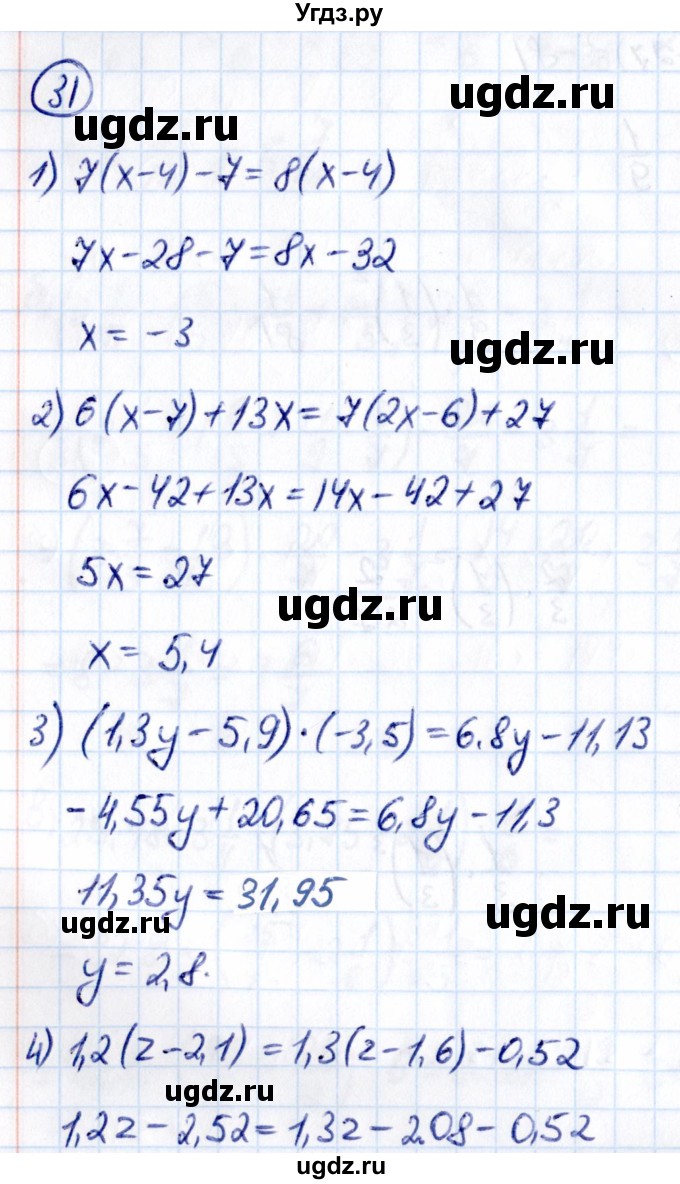 Угдз.ру
31
ugdz.ru
ugdz.ru
1) 7(x-4)-7=8(x-4)
7x-28-7=8x-32
x=-3
ugdz.ru
2) 6(x-7)+13x=7(2x-6)+27
6x-42+13x=14x-42+27
5x=27
ugdz.ru
x=5,4
3) (1,3y-5,9)·(-3,5)=6.8y-11,13
-4,55y+20,65=6,8y-11,3
11,35y=31,95
ugdz.ru
ugdz.ru
y=2,8.
4) 1,2(z-2,1)=1,3(z-1,6)-0,52
ugdz.ru
1,2z-2,52=1,3z-2.08-0,52
ugdz.ru